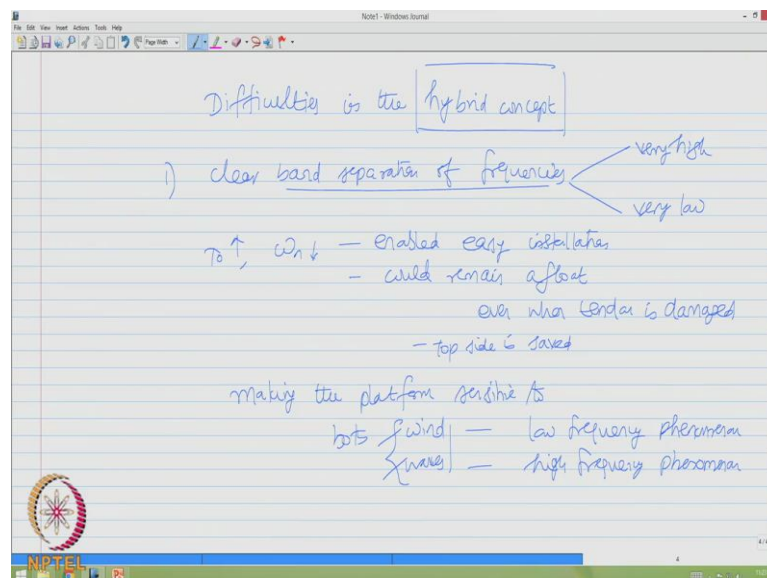 Note1 - Windows Journal
File Edit View Insert Actions Tools Help
Page Width
Difficulties in the hybrid concept
1) clear band separation of frequencies
very high
very low
To ↑, ωn ↓ — enabled easy installation
- could remain afloat
even when tendon is damaged
- top side is saved
making the platform sensitive to
both { wind — low frequency phenomenon
{ waves — high frequency phenomenon
NPTEL
4